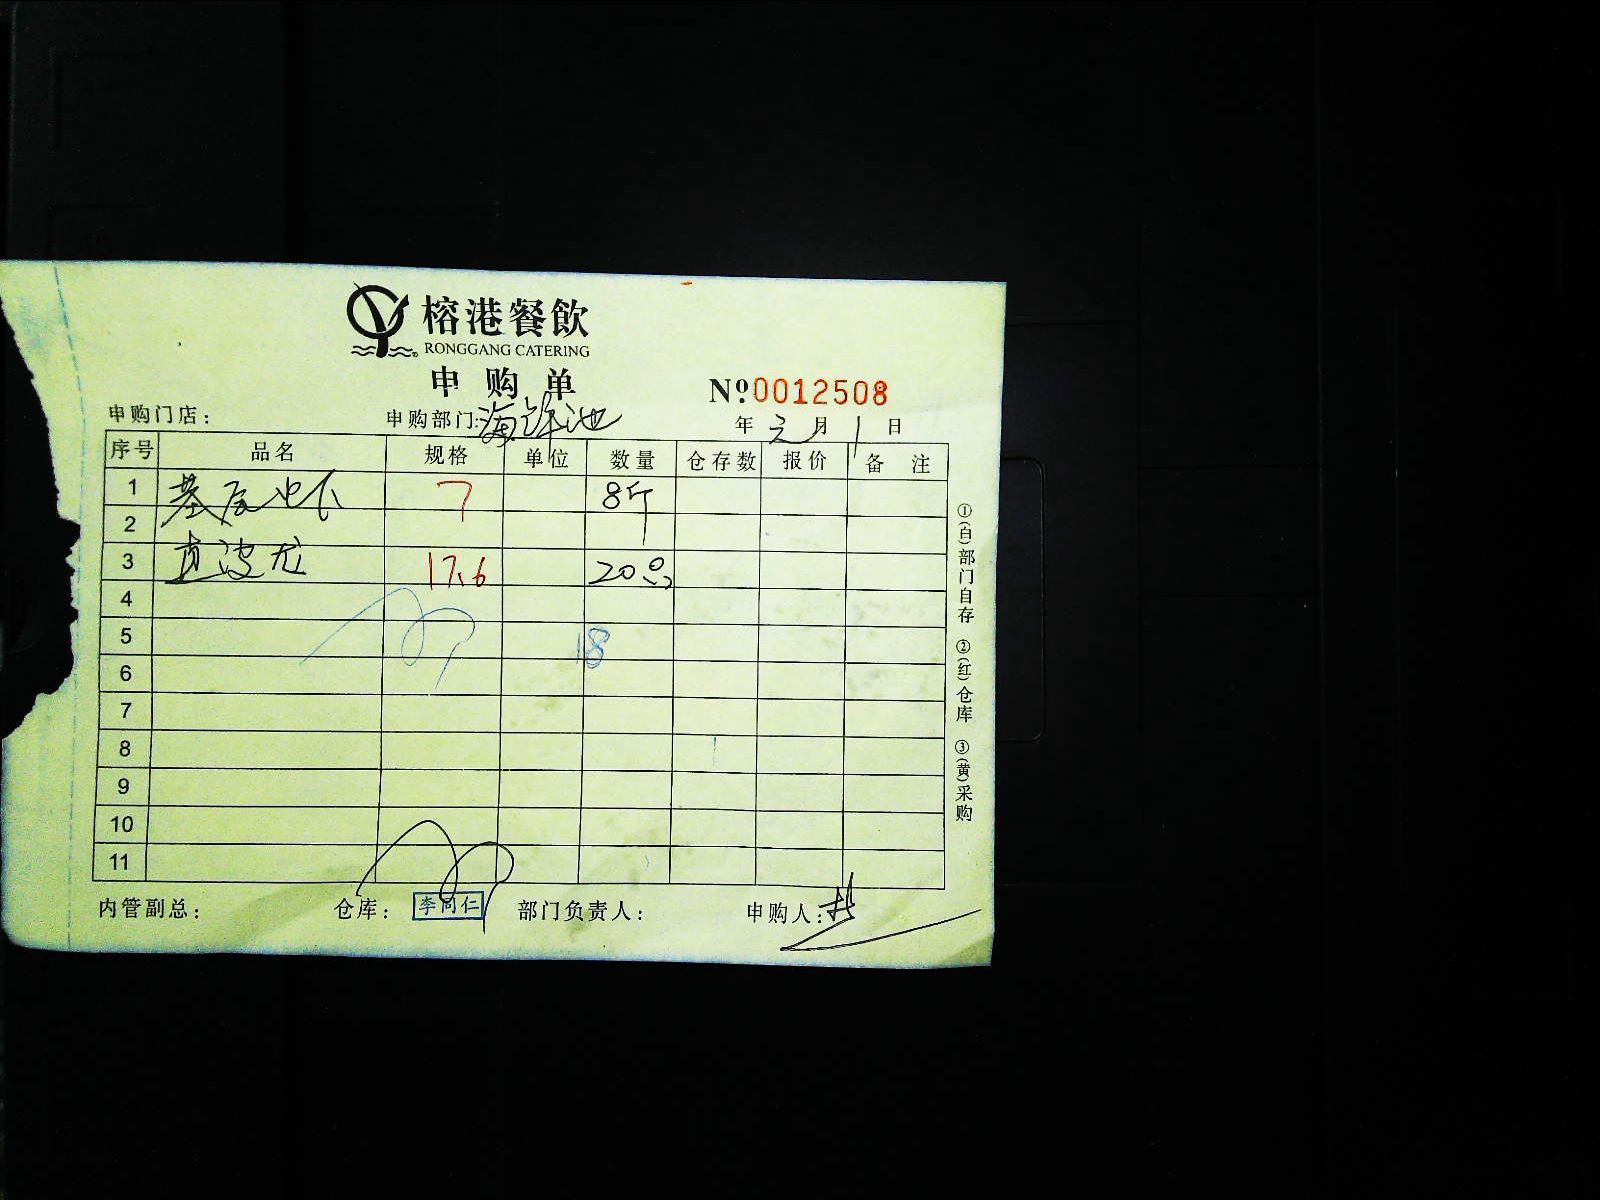 榕港餐飲
RONGGANG CATERING
申购单
№0012508
申购门店： 申购部门：海鲜池 年 元月 1日
序号 品名 规格 单位 数量 仓存数 报价 备 注
1 基尾虾 7 8斤
2
3 直波龙 17.6 20只
4
5 18
6
7
8
9
10
11
内管副总： 仓库： 李同仁 部门负责人： 申购人：
①(白)部门自存 ②(红)仓库 ③(黄)采购